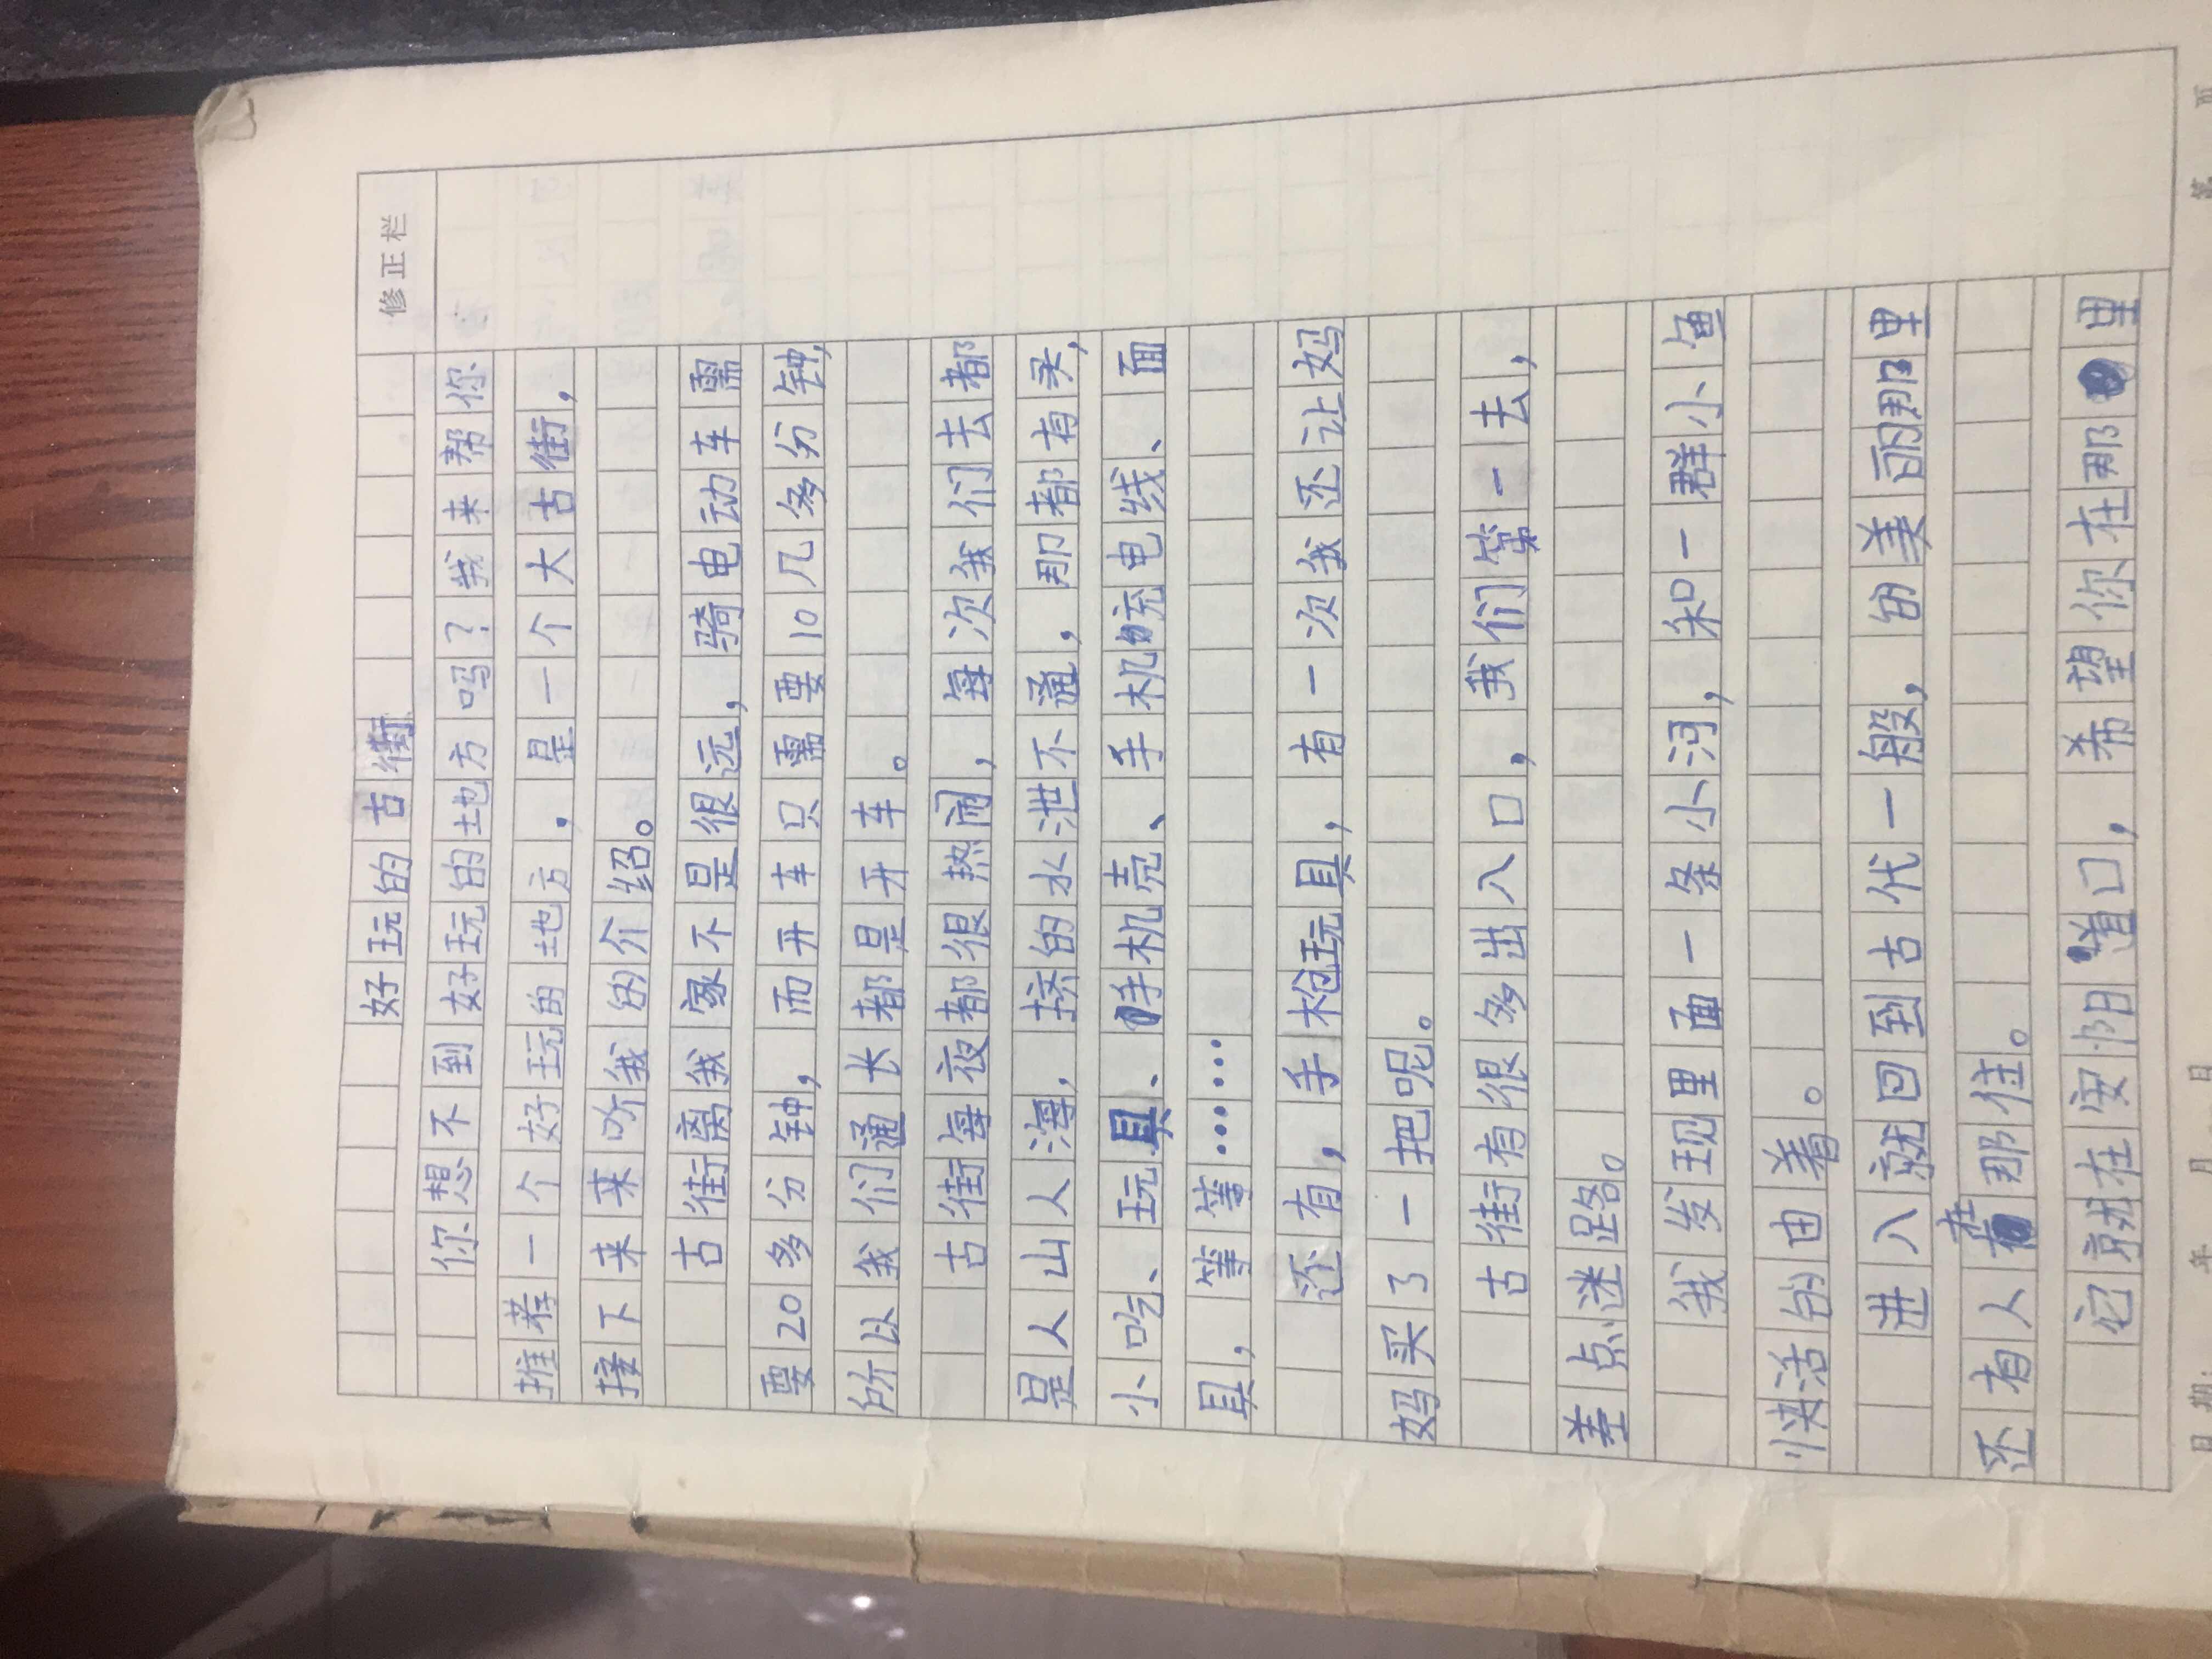 修正栏
好玩的古街
你想不到好玩的地方吗？我来帮你
推荐一个好玩的地方，是一个大古街，
接下来来听我的介绍。
古街离我家不是很远，骑电动车需
要20多分钟，而开车只需要10几多分钟，
所以我们通长都是开车。
古街每夜都很热闹，每次我们去都
是人山人海，挤的水泄不通，那都有买，
小吃、玩具、手机壳、手机充电线、面
具，等等……
还有，手枪玩具，有一次我还让妈
妈买了一把呢。
古街有很多出入口，我们第一去，
差点迷路。
我发现里面一条小河，和一群小鱼
快活的由着。
进入就回到古代一般，的美丽那里
还有人在那住。
它就在安阳道口，希望你在那里
日期： 年 月 日 第 页